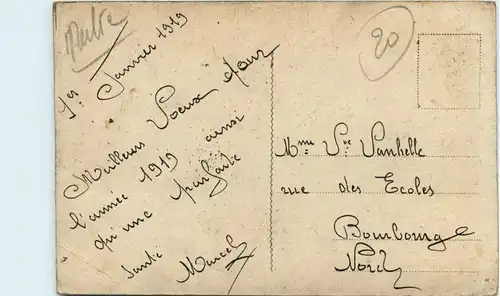 1er Janvier 1919
Meilleurs Voeux pour
l'année 1919 ainsi
qu'une parfaite
santé
Marcel
20
Mme Vve Vanhelle
rue des Ecoles
Bourbourg
Nord